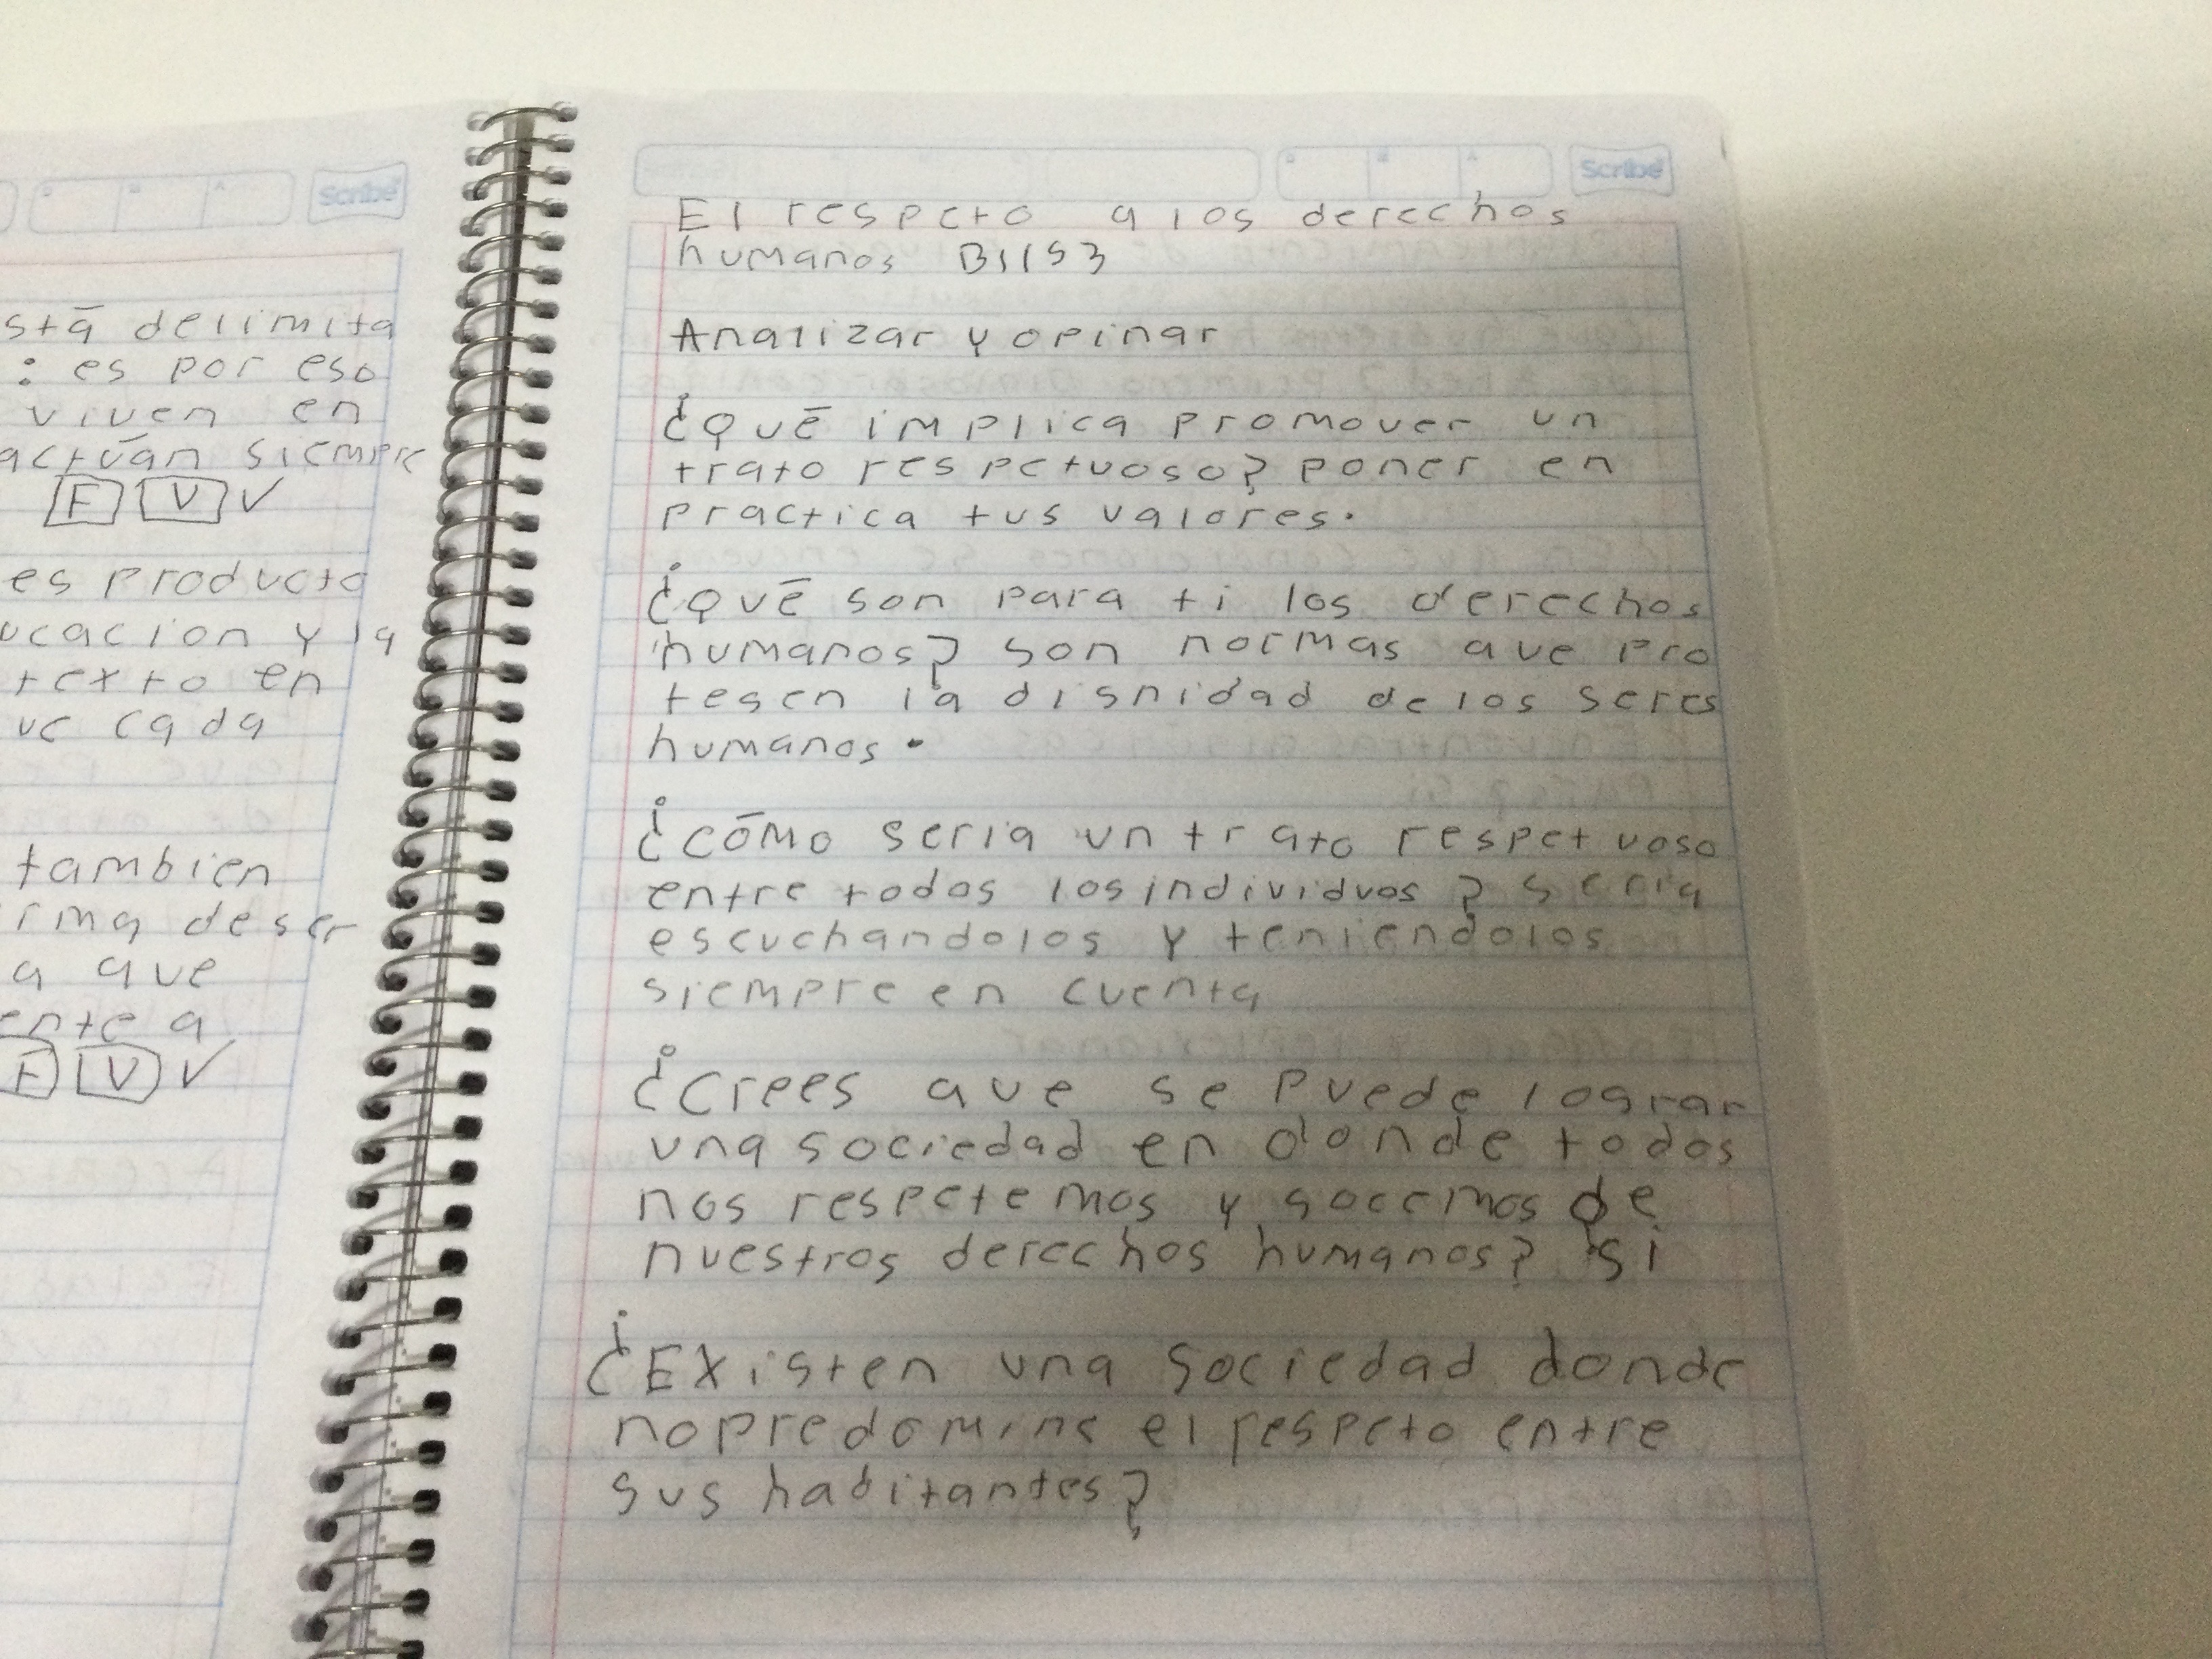 Scribe
stá delimita
: es por eso
viven en
actúan siempre
F V ✓
es producto
ucacion y la
texto en
ue cada
tambien
rma de ser
a que
ente a
F V ✓
Scribe
El respeto a los derechos
humanos B11S3
Analizar y opinar
¿Qué implica promover un
trato respetuoso? poner en
practica tus valores.
¿Qué son para ti los derechos
humanos? son normas que pro
tegen la dignidad de los seres
humanos.
¿cómo seria un trato respetuoso
entre todos los individuos? seria
escuchandolos y teniendolos
siempre en cuenta
¿Crees que se puede lograr
una sociedad en donde todos
nos respetemos y gocemos de
nuestros derechos humanos? si
¿Existen una sociedad donde
no predomine el respeto entre
sus habitantes?